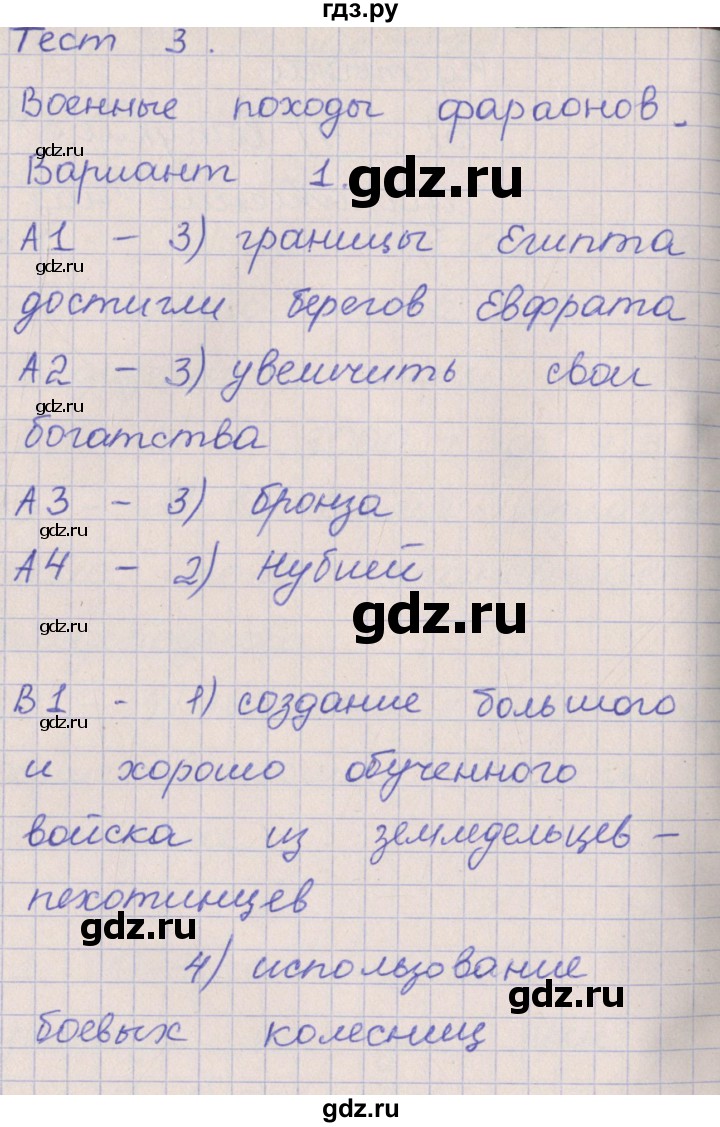 гдз.ру
Тест 3.
Военные походы фараонов.
gdz.ru
Вариант 1.
gdz.ru
А1 – 3) границы Египта
gdz.ru
достигли берегов Евфрата
А2 – 3) увеличить свои
gdz.ru
богатства
А3 – 3) бронза
gdz.ru
А4 – 2) Нубией
gdz.ru
gdz.ru
В1 - 1) создание большого
gdz.ru
и хорошо обученного
войска из земледельцев –
пехотинцев
gdz.ru
4) использование
gdz.ru
боевых колесниц
gdz.ru